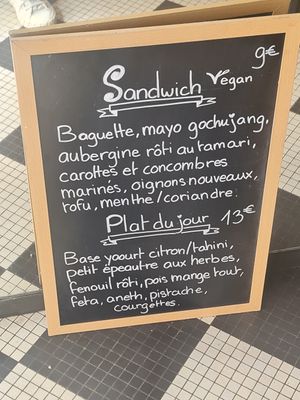 9€
Sandwich Vegan
Baguette, mayo gochujang,
aubergine rôti au tamari,
carottes et concombres
marinés, oignons nouveaux,
tofu, menthe/coriandre.
Plat du jour 13€
Base yaourt citron/tahini,
petit épeautre aux herbes,
fenouil rôti, pois mange tout,
feta, aneth, pistache,
courgettes.